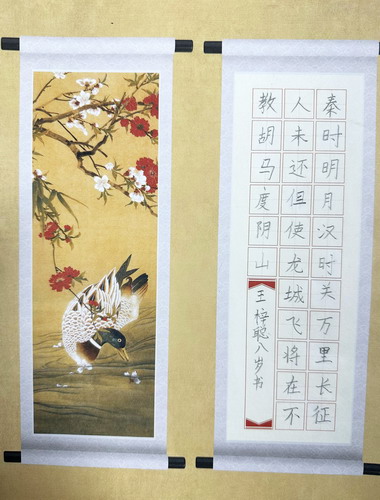 秦时明月汉时关万里长征
人未还但使龙城飞将在不
教胡马度阴山
王梓聪八岁书